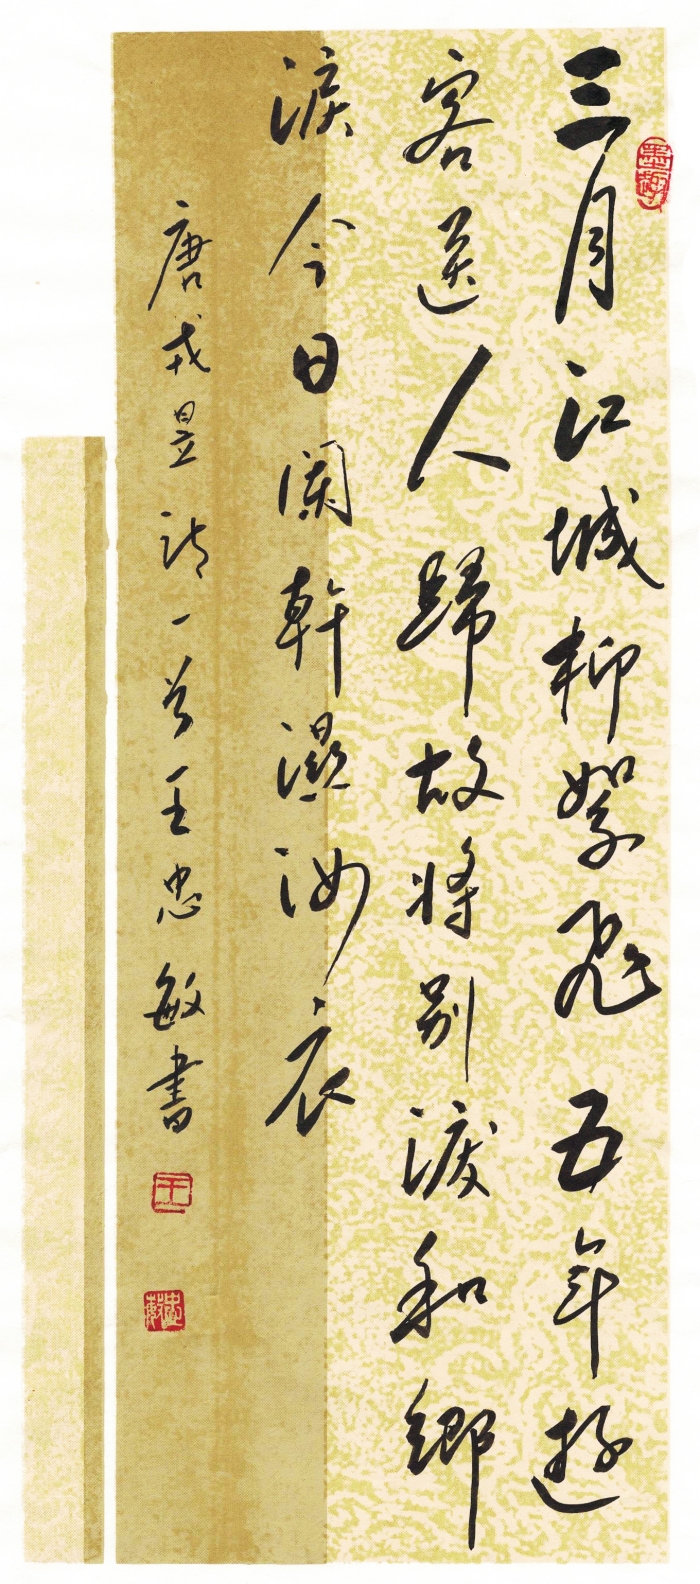 三月江城柳絮飛五年遊
客送人歸故將別淚和鄉
淚今日闌幹濕汝衣
唐戎昱詩一首王忠敏書
王
忠敏